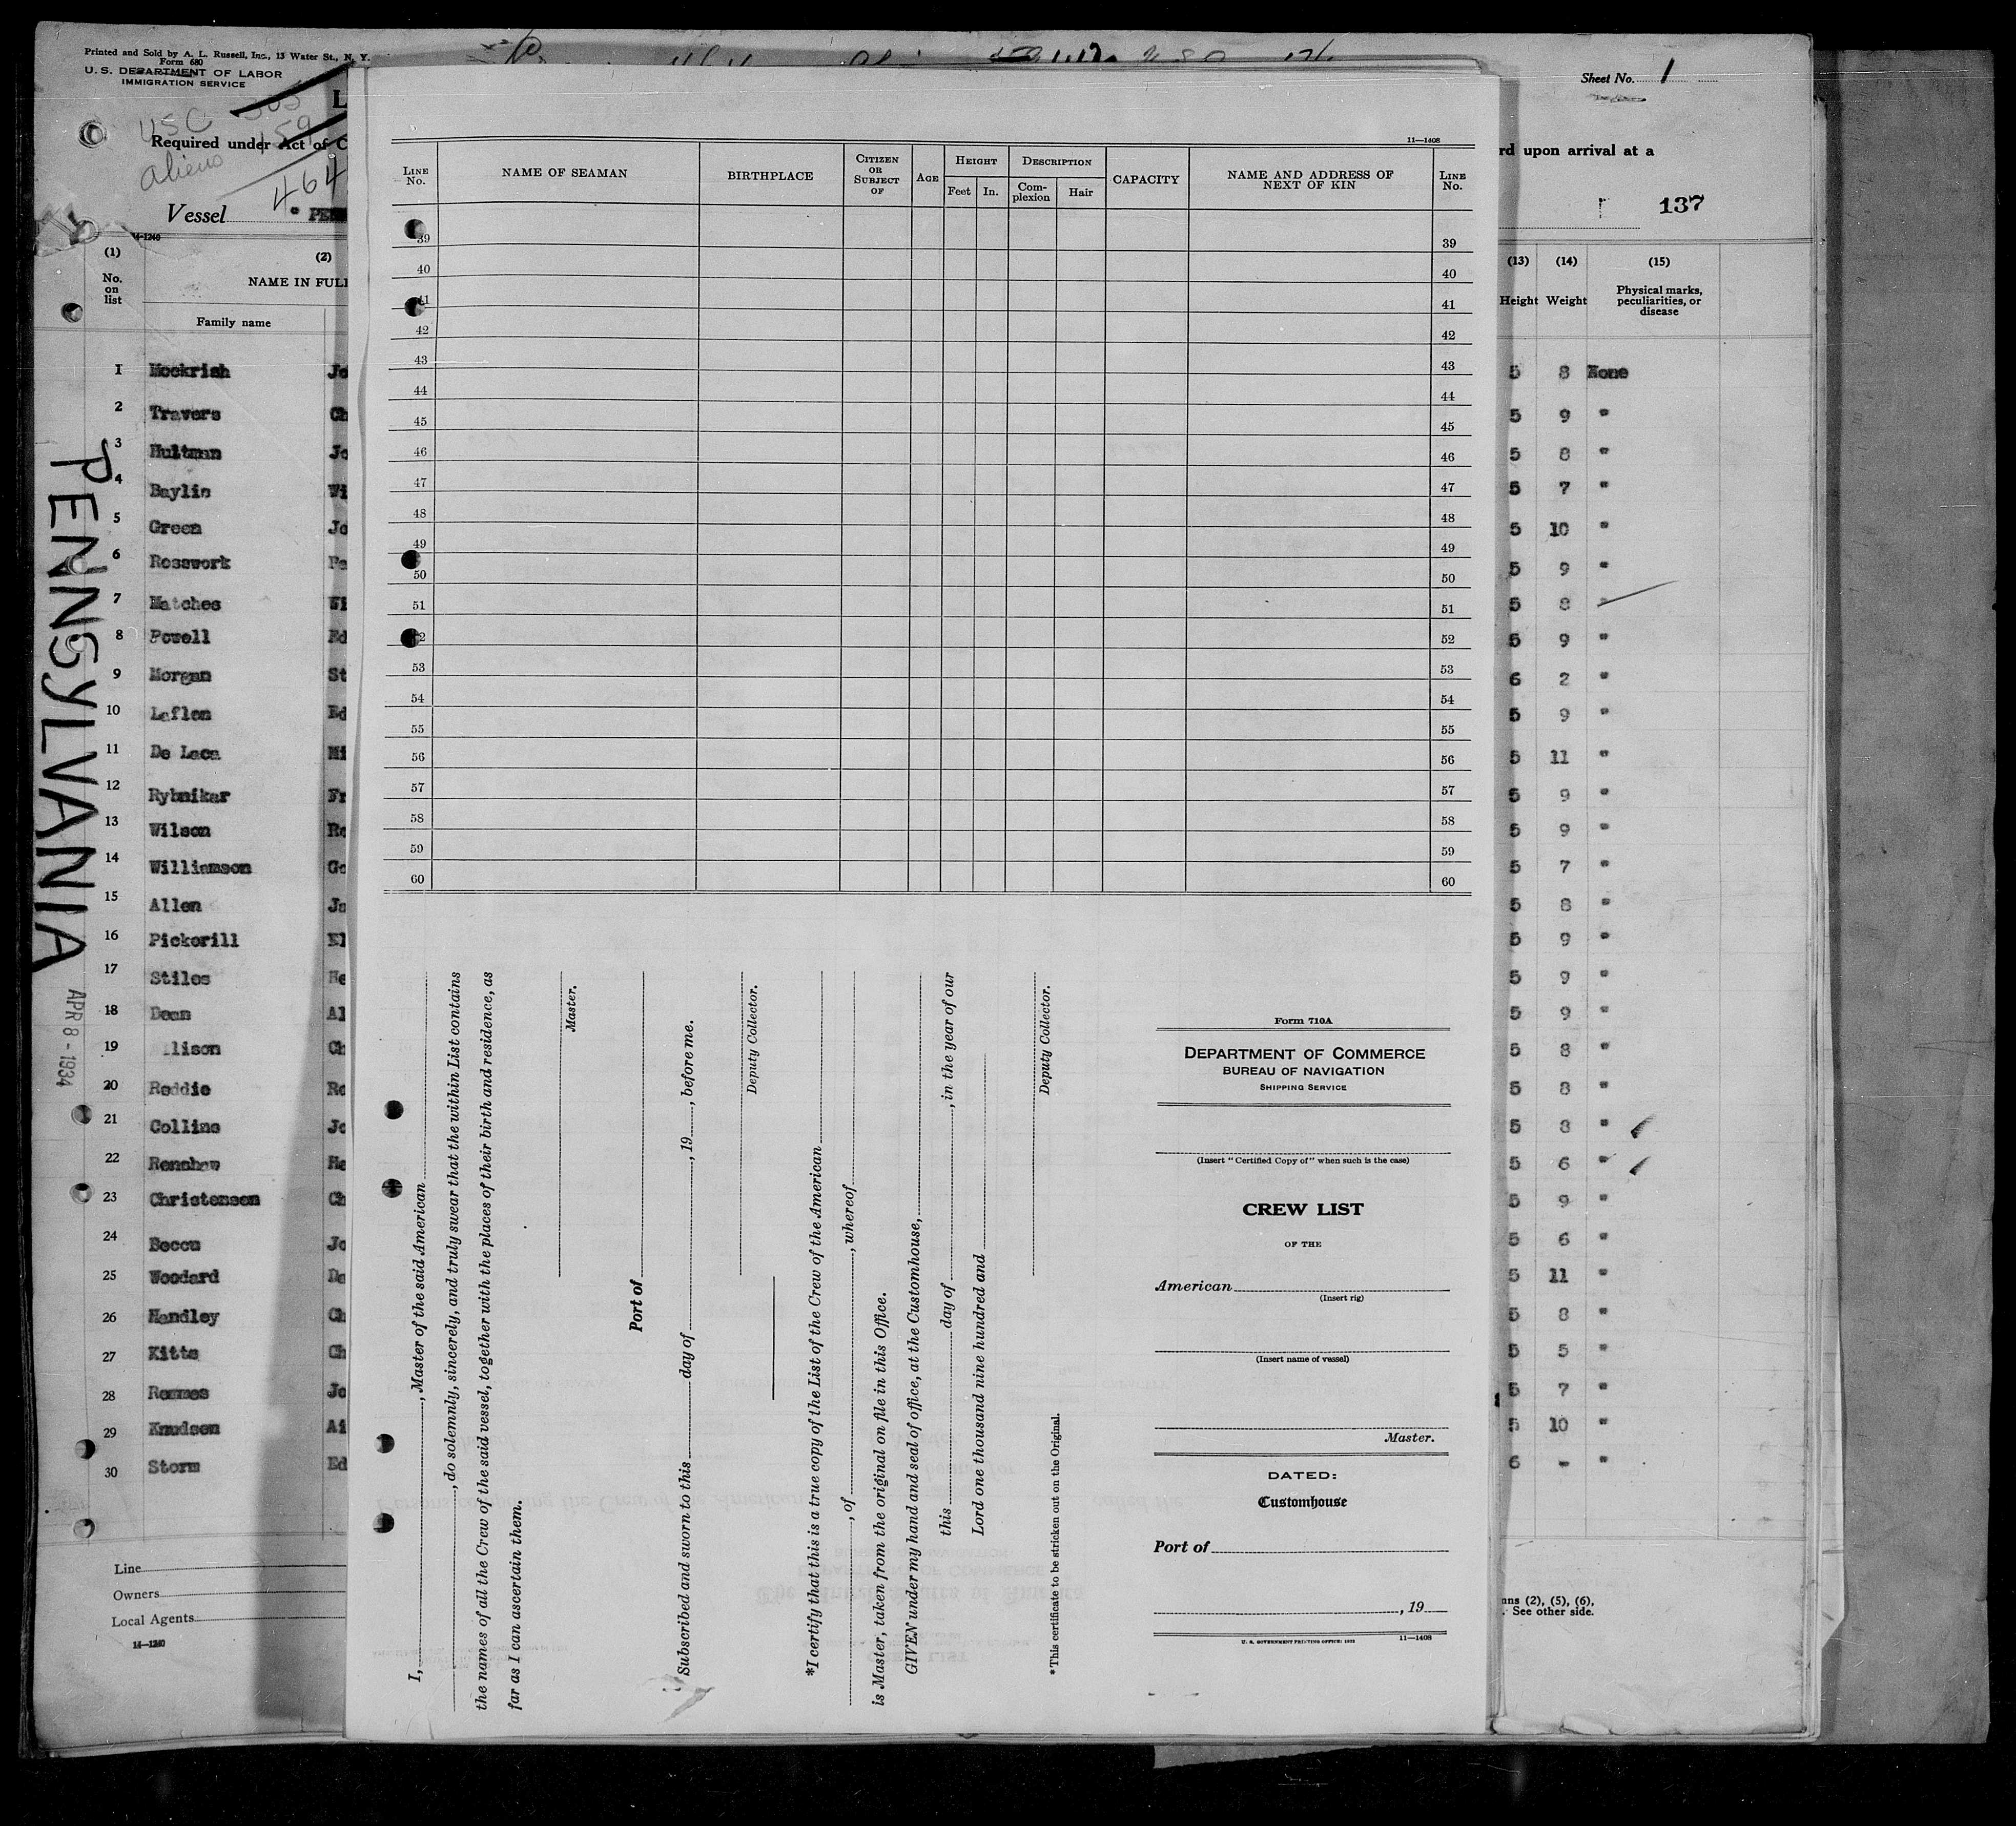 Printed and Sold by A. L. Russell, Inc., 13 Water St., N. Y.
Form 680
U. S. DEPARTMENT OF LABOR
IMMIGRATION SERVICE
L
USC 305
159
Required under Act of C
aliens
464
Vessel
" PE
14-1240
(1)
No.
on
list
(2)
NAME IN FULL
Family name
1 Mockrish Jo
2 Travers Ch
3 Hultman Jo
4 Baylis Wi
5 Green Jo
6 Rosswork Pe
7 Matches Wi
8 Powell Ed
9 Morgan St
10 Laflen Ed
11 De Laca Mi
12 Rybnikar Fr
13 Wilson Ro
14 Williamson Ge
15 Allen Ja
16 Pickerill El
17 Stiles He
18 Dean Al
19 llison Ch
20 Reddie Ro
21 Collins Jo
22 Renshaw Ha
23 Christensen Ch
24 Beccu Jo
25 Woodard Da
26 Handley Ch
27 Kitts Ch
28 Rommes Jo
29 Knudsen Ai
30 Storm Ed
PENNSYLVANIA
APR 8 - 1934
Line
Owners
Local Agents
14-1240
11—1408
LINE No.
NAME OF SEAMAN
BIRTHPLACE
CITIZEN OR SUBJECT OF
AGE
HEIGHT
Feet
In.
DESCRIPTION
Complexion
Hair
CAPACITY
NAME AND ADDRESS OF NEXT OF KIN
LINE No.
39 39
40 40
41 41
42 42
43 43
44 44
45 45
46 46
47 47
48 48
49 49
50 50
51 51
52 52
53 53
54 54
55 55
56 56
57 57
58 58
59 59
60 60
I, , Master of the said American
, do solemnly, sincerely, and truly swear that the within List contains
the names of all the Crew of the said vessel, together with the places of their birth and residence, as
far as I can ascertain them.
Master.
Port of
Subscribed and sworn to this day of , 19 , before me.
Deputy Collector.
*I certify that this is a true copy of the List of the Crew of the American
, of , whereof
is Master, taken from the original on file in this Office.
GIVEN under my hand and seal of office, at the Customhouse,
this day of , in the year of our
Lord one thousand nine hundred and
Deputy Collector.
*This certificate to be stricken out on the Original.
Form 710A
DEPARTMENT OF COMMERCE
BUREAU OF NAVIGATION
SHIPPING SERVICE
(Insert "Certified Copy of" when such is the case)
CREW LIST
OF THE
American
(Insert rig)
(Insert name of vessel)
Master.
DATED:
Customhouse
Port of
, 19
U. S. GOVERNMENT PRINTING OFFICE: 1932 11—1408
Sheet No. 1
rd upon arrival at a
137
(13) (14) (15)
Height Weight Physical marks, peculiarities, or disease
5 8 None
5 9 "
5 8 "
5 7 "
5 10 "
5 9 "
5 8 "
5 9 "
6 2 "
5 9 "
5 11 "
5 9 "
5 9 "
5 7 "
5 8 "
5 9 "
5 9 "
5 9 "
5 8 "
5 8 "
5 8 "
5 6 "
5 9 "
5 6 "
5 11 "
5 8 "
5 5 "
5 7 "
5 10 "
6 - "
ns (2), (5), (6),
. See other side.